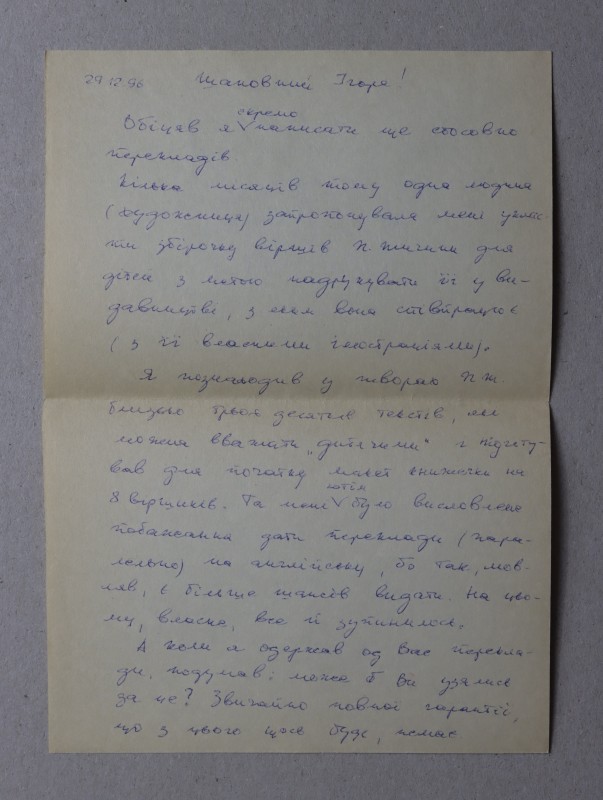 29.12.96 Шановний Ігоре!
окремо
Обіцяв я √ написати ще стосовно
перекладів
Кілька місяців тому одна людина
(художниця) запропонувала мені уклас-
ти збірочку віршів П. Тичини для
дітей з метою надрукувати її у ви-
давництві, з яким вона співпрацює
(з її власними ілюстраціями).
Я познаходив у творах П.Т.
близько трьох десятків текстів, які
можна вважати „дитячими“ і підготу-
вав для початку макет книжечки на
8 віршиків. Та мені √ було висловлене
побажання дати переклади (пара-
лельно) на англійську, бо так, мов-
ляв, є більше шансів видати. На цьо-
му, власне, все й зупинилось.
А коли я одержав од Вас перекла-
ди, подумав: може б Ви узялись
за це? Звичайно повної гарантії,
що з цього щось буде, немає